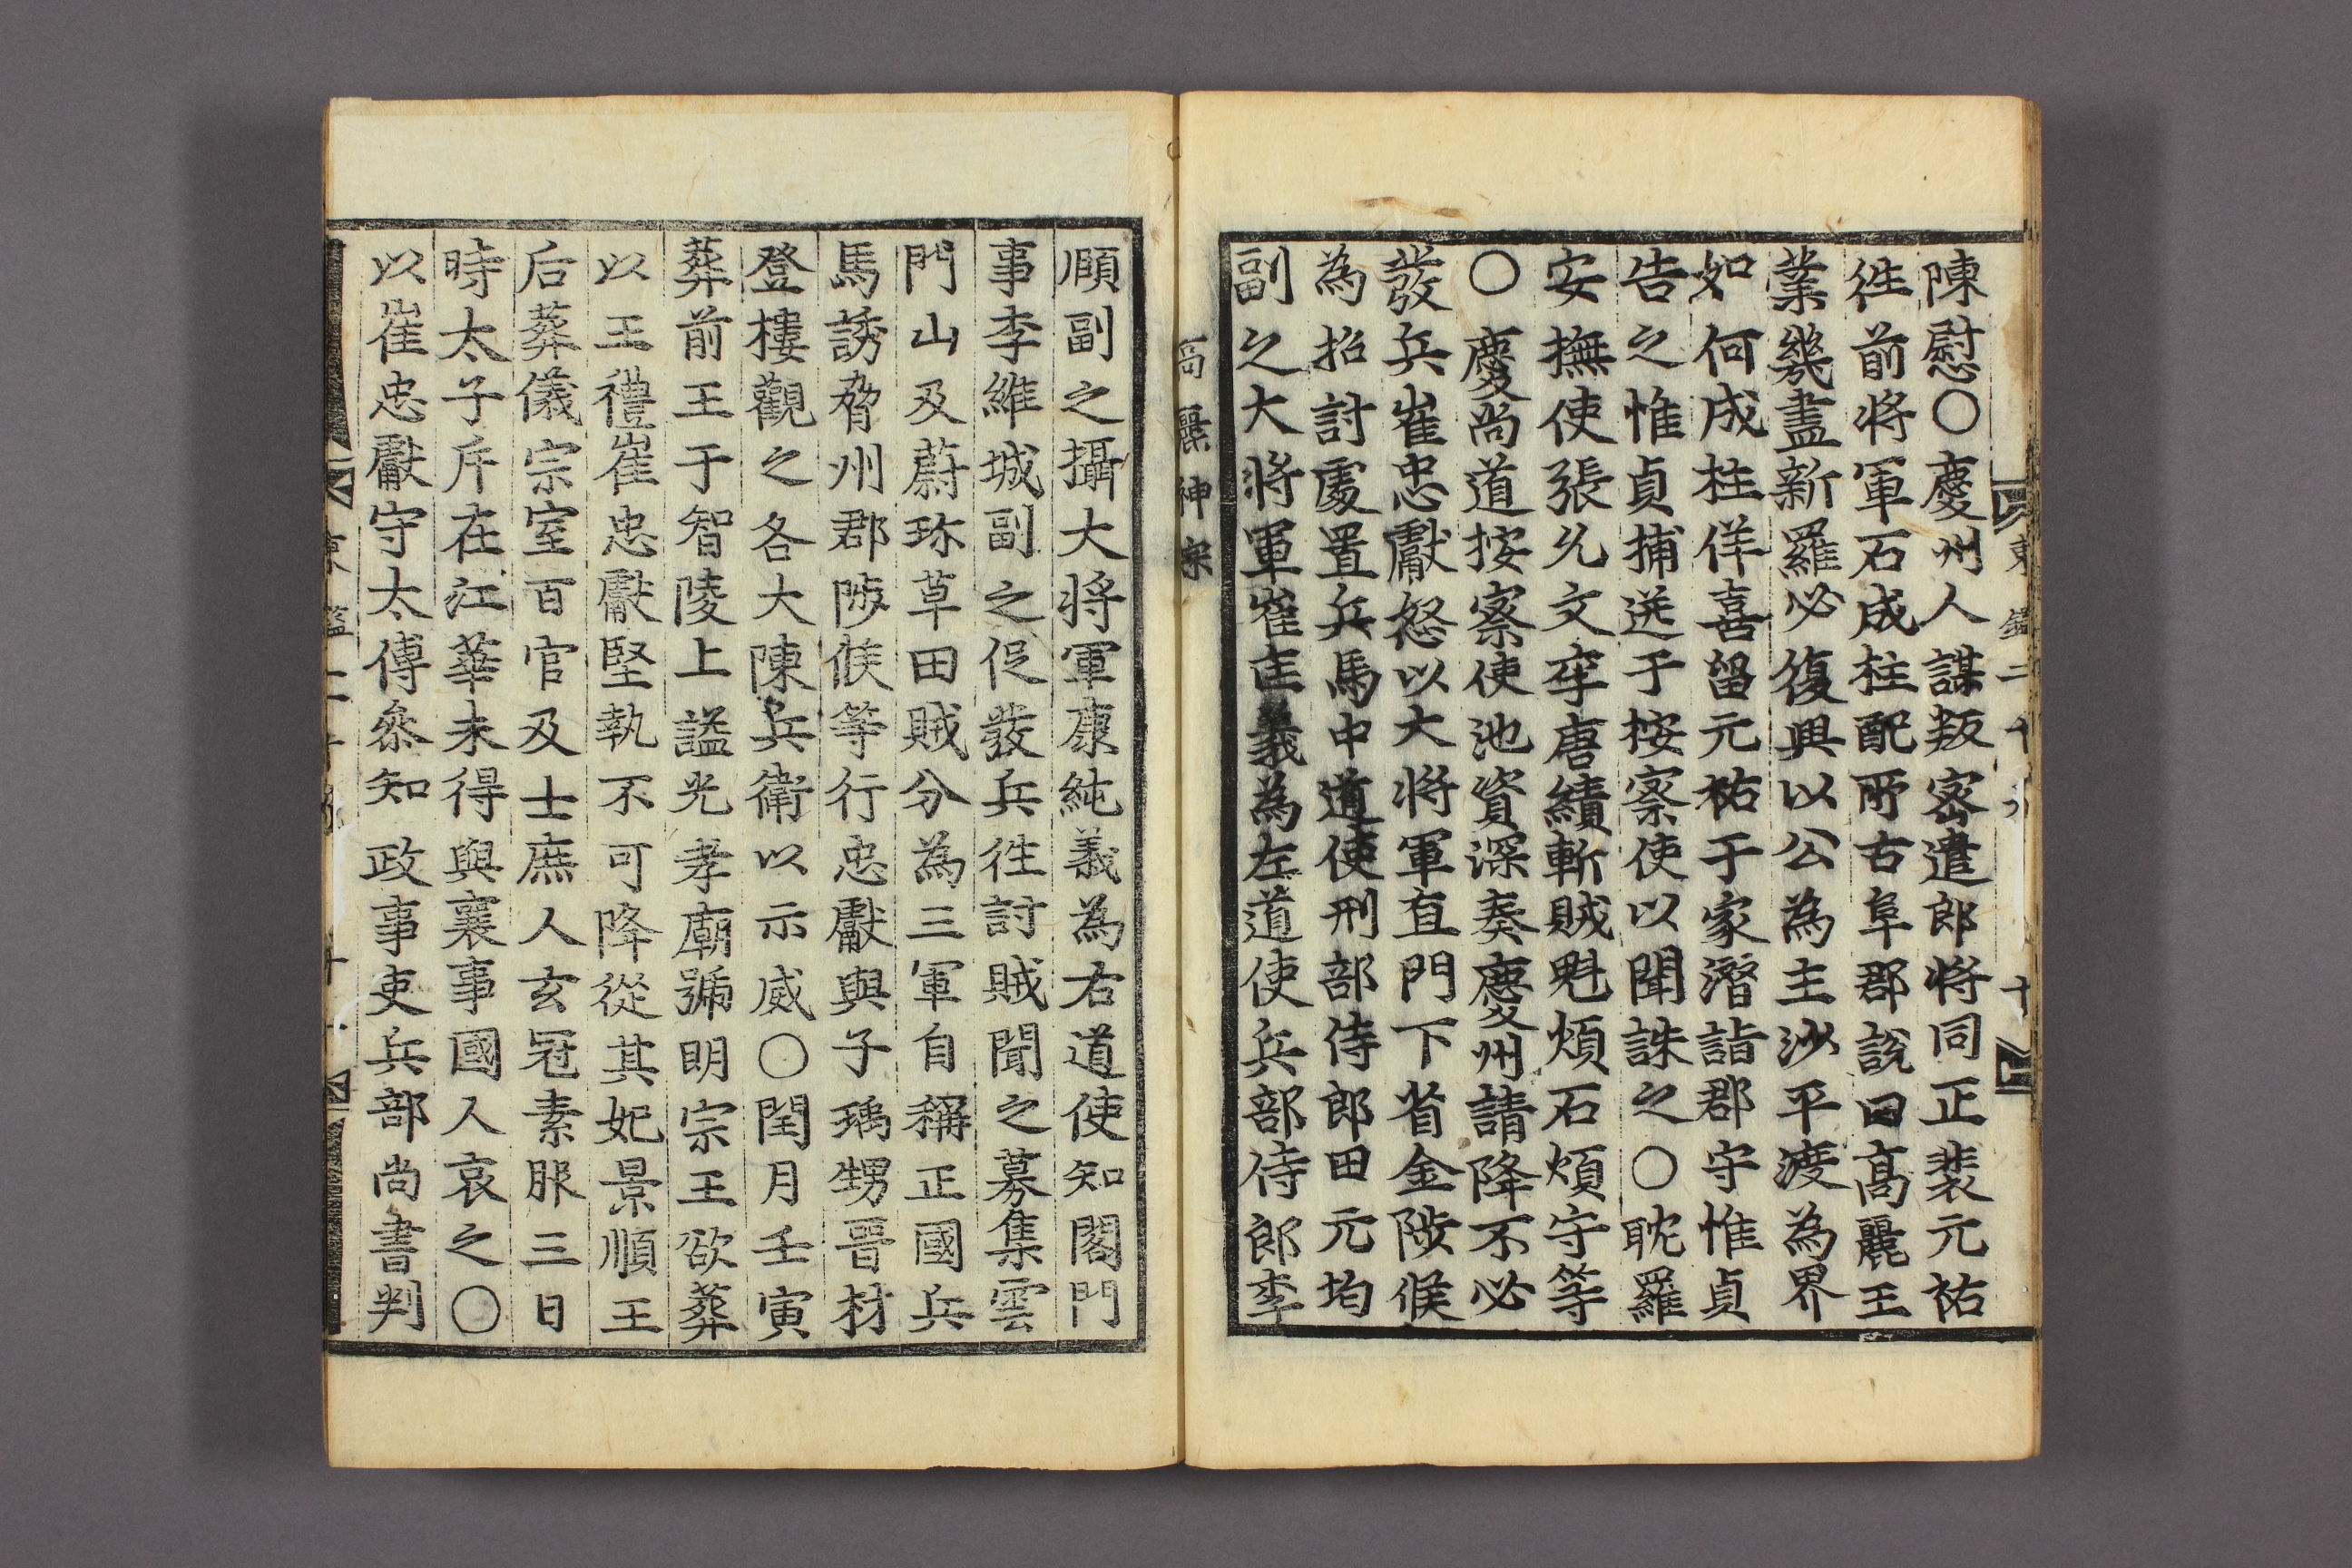 陳慰○慶州人謀叛密遣郎將同正裴元祐
徃前將軍石成柱配所古阜郡說曰髙麗王
業幾盡新羅必復興以公爲主沙平渡爲界
如何成柱佯喜留元祐于家潛詣郡守惟貞
告之惟貞捕送于按察使以聞誅之○耽羅
安撫使張允文李唐績斬賊魁煩石煩守等
○慶尚道按察使池資深奏慶州請降不必
發兵崔忠獻怒以大將軍直門下省金陟侯
爲招討處置兵馬中道使刑部侍郎田元均
副之大將軍崔匡義爲左道使兵部侍郎李
高麗神宗
頤副之攝大將軍康純義爲右道使知閤門
事李維城副之促發兵徃討賊聞之募集雲
門山及蔚珎草田賊分爲三軍自稱正國兵
馬誘脅州郡陟侯等行忠獻與子瑀甥晋材
登樓觀之各大陳兵衛以示威○閏月壬寅
葬前王于智陵上謚光孝廟號明宗王欲葬
以王禮崔忠獻堅執不可降從其妃景順王
后葬儀宗室百官及士庶人玄冠素服三日
時太子斥在江華未得與襄事國人哀之○
以崔忠獻守太傅叅知政事吏兵部尚書判